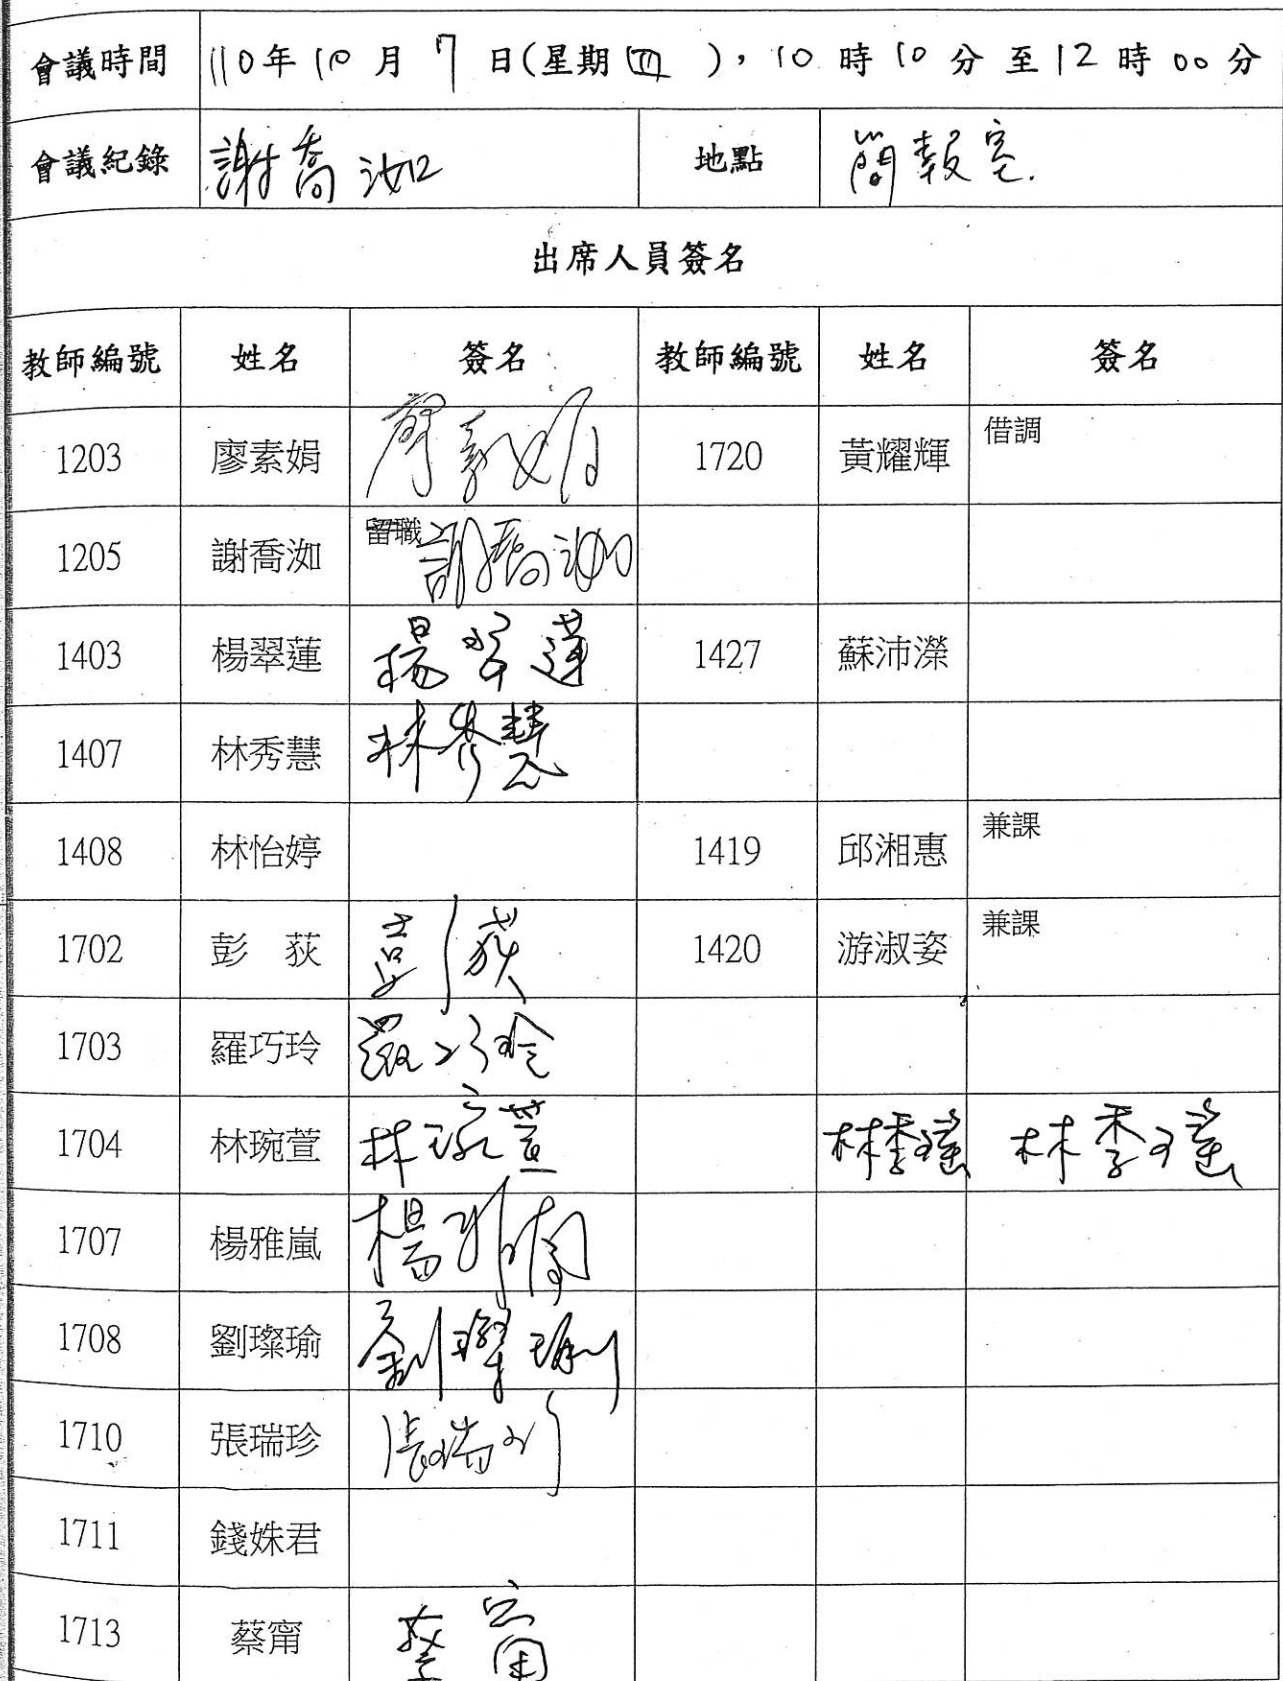 會議時間 110年10月7日(星期四),10時10分至12時00分
會議紀錄 謝喬汝 地點 簡報室.
出席人員簽名
教師編號 姓名 簽名 教師編號 姓名 簽名
1203 廖素娟 廖素娟 1720 黃耀輝 借調
1205 謝喬洳 留職 謝喬洳
1403 楊翠蓮 楊翠蓮 1427 蘇沛瀠
1407 林秀慧 林秀慧
1408 林怡婷 1419 邱湘惠 兼課
1702 彭 荻 彭荻 1420 游淑姿 兼課
1703 羅巧玲 羅巧玲
1704 林琬萱 林琬萱 林季瑤 林季瑤
1707 楊雅嵐 楊雅嵐
1708 劉璨瑜 劉璨瑜
1710 張瑞珍 張瑞珍
1711 錢姝君
1713 蔡甯 蔡甯